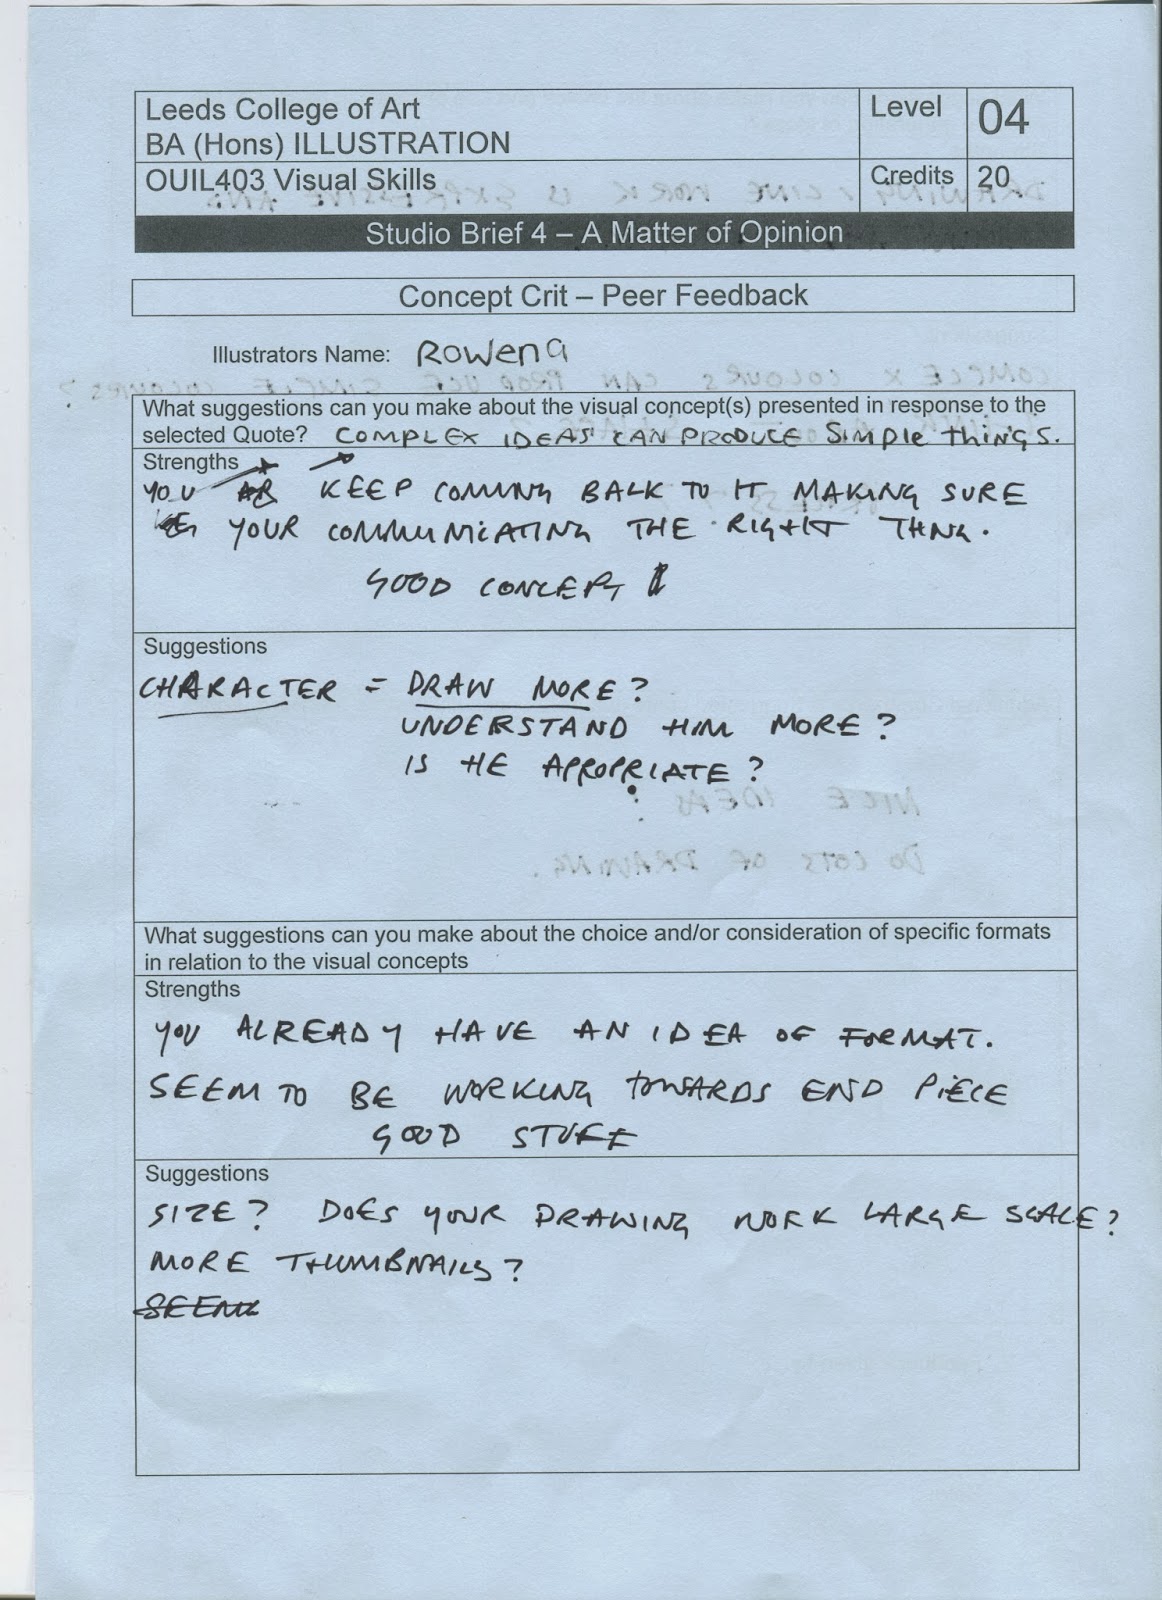 Leeds College of Art
BA (Hons) ILLUSTRATION
Level 04
OUIL403 Visual Skills
Credits 20
Studio Brief 4 – A Matter of Opinion
Concept Crit – Peer Feedback
Illustrators Name: Rowena
What suggestions can you make about the visual concept(s) presented in response to the
selected Quote? COMPLEX IDEAS CAN PRODUCE SIMPLE THINGS.
Strengths
YOU KEEP COMING BACK TO IT MAKING SURE
YOUR COMMUNICATING THE RIGHT THNG.
GOOD CONCEPT
Suggestions
CHARACTER = DRAW MORE?
UNDERSTAND HIM MORE?
IS HE APROPRIATE?
NICE IDEAS
DO LOTS OF DRAWING.
What suggestions can you make about the choice and/or consideration of specific formats
in relation to the visual concepts
Strengths
YOU ALREADY HAVE AN IDEA OF FORMAT.
SEEM TO BE WORKING TOWARDS END PIECE
GOOD STUFF
Suggestions
SIZE? DOES YOUR DRAWING WORK LARGE SCALE?
MORE THUMBNAILS?